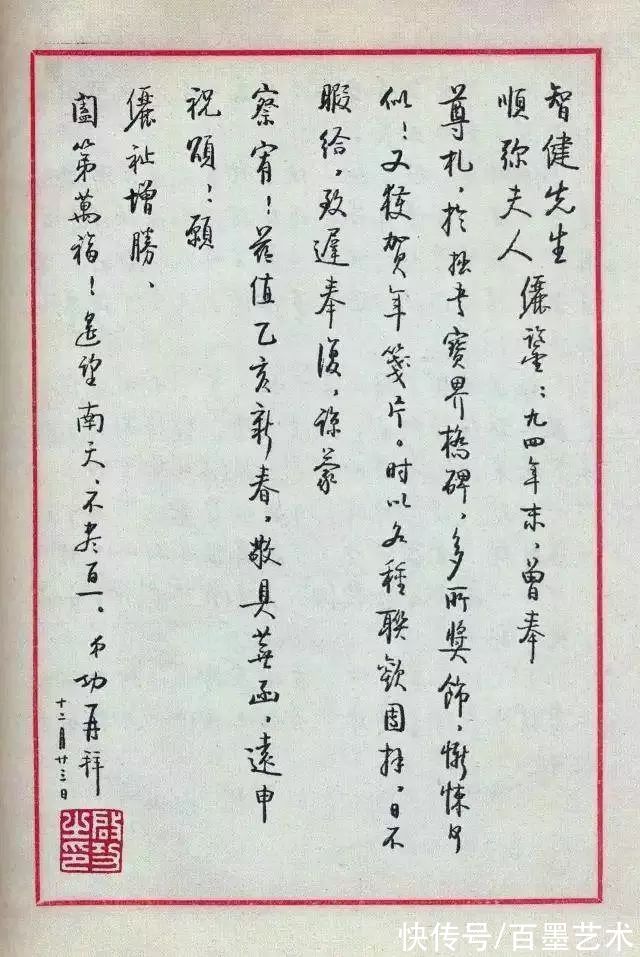 智健先生
順弥夫人 儷鑒：九四年末，曾奉
尊札，於拙書寶界橋碑，多所獎飾，慚悚何
似！又獲賀年箋片。時以各種聯歡團拜，日不
暇給，致遲奉復，諒蒙
察宥！茲值乙亥新春，敬具蕪函，遠申
祝頌：願
儷祉增勝、
闔第萬福！遙望南天、不尽百一。 弟功再拜
十二月廿三日
啟功之印
快传号/百墨艺术